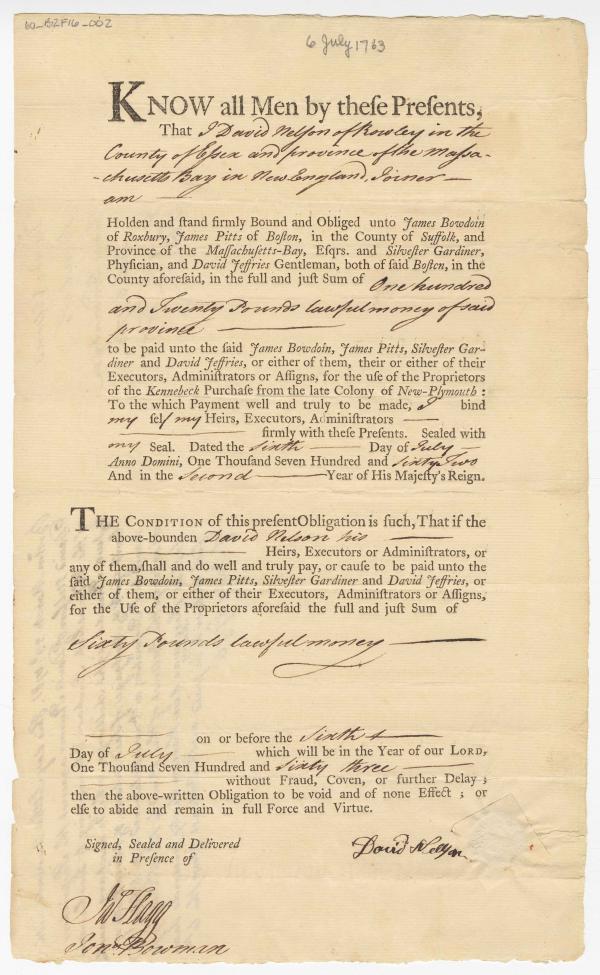 60_B2F16_002
6 July 1763
KNOW all Men by theſe Preſents,
That I David Nelſon of Rowley in the
County of Eſsex and province of the Maſsa-
-chusetts Bay in New England, Joiner —
am —
Holden and ſtand firmly Bound and Obliged unto James Bowdoin
of Roxbury, James Pitts of Boſton, in the County of Suffolk, and
Province of the Maſſachuſetts-Bay, Eſqrs. and Silveſter Gardiner,
Phyſician, and David Jeffries Gentleman, both of ſaid Boſton, in the
County aforeſaid, in the full and juſt Sum of One hundred
and Twenty Pounds lawful money of said
province —
to be paid unto the ſaid James Bowdoin, James Pitts, Silveſter Gar-
diner and David Jeffries, or either of them, their or either of their
Executors, Adminiſtrators or Aſſigns, for the uſe of the Proprietors
of the Kennebeck Purchaſe from the late Colony of New-Plymouth :
To the which Payment well and truly to be made, I bind
my ſelf my Heirs, Executors, Adminiſtrators —
— firmly with theſe Preſents. Sealed with
my Seal. Dated the Sixth — Day of July
Anno Domini, One Thouſand Seven Hundred and Sixty Two
And in the Second — Year of His Majeſty's Reign.
THE CONDITION of this preſent Obligation is ſuch, That if the
above-bounden David Nelson his —
— Heirs, Executors or Adminiſtrators, or
any of them, ſhall and do well and truly pay, or cauſe to be paid unto the
ſaid James Bowdoin, James Pitts, Silveſter Gardiner and David Jeffries, or
either of them, or either of their Executors, Adminiſtrators or Aſſigns,
for the Uſe of the Proprietors aforeſaid the full and juſt Sum of
Sixty Pounds lawful money —
— on or before the Sixth
Day of July — which will be in the Year of our LORD,
One Thouſand Seven Hundred and Sixty three —
— without Fraud, Coven, or further Delay ;
then the above-written Obligation to be void and of none Effect ; or
elſe to abide and remain in full Force and Virtue.
Signed, Sealed and Delivered
in Preſence of
David Nelson
Jas Flagg
Jona Bowman